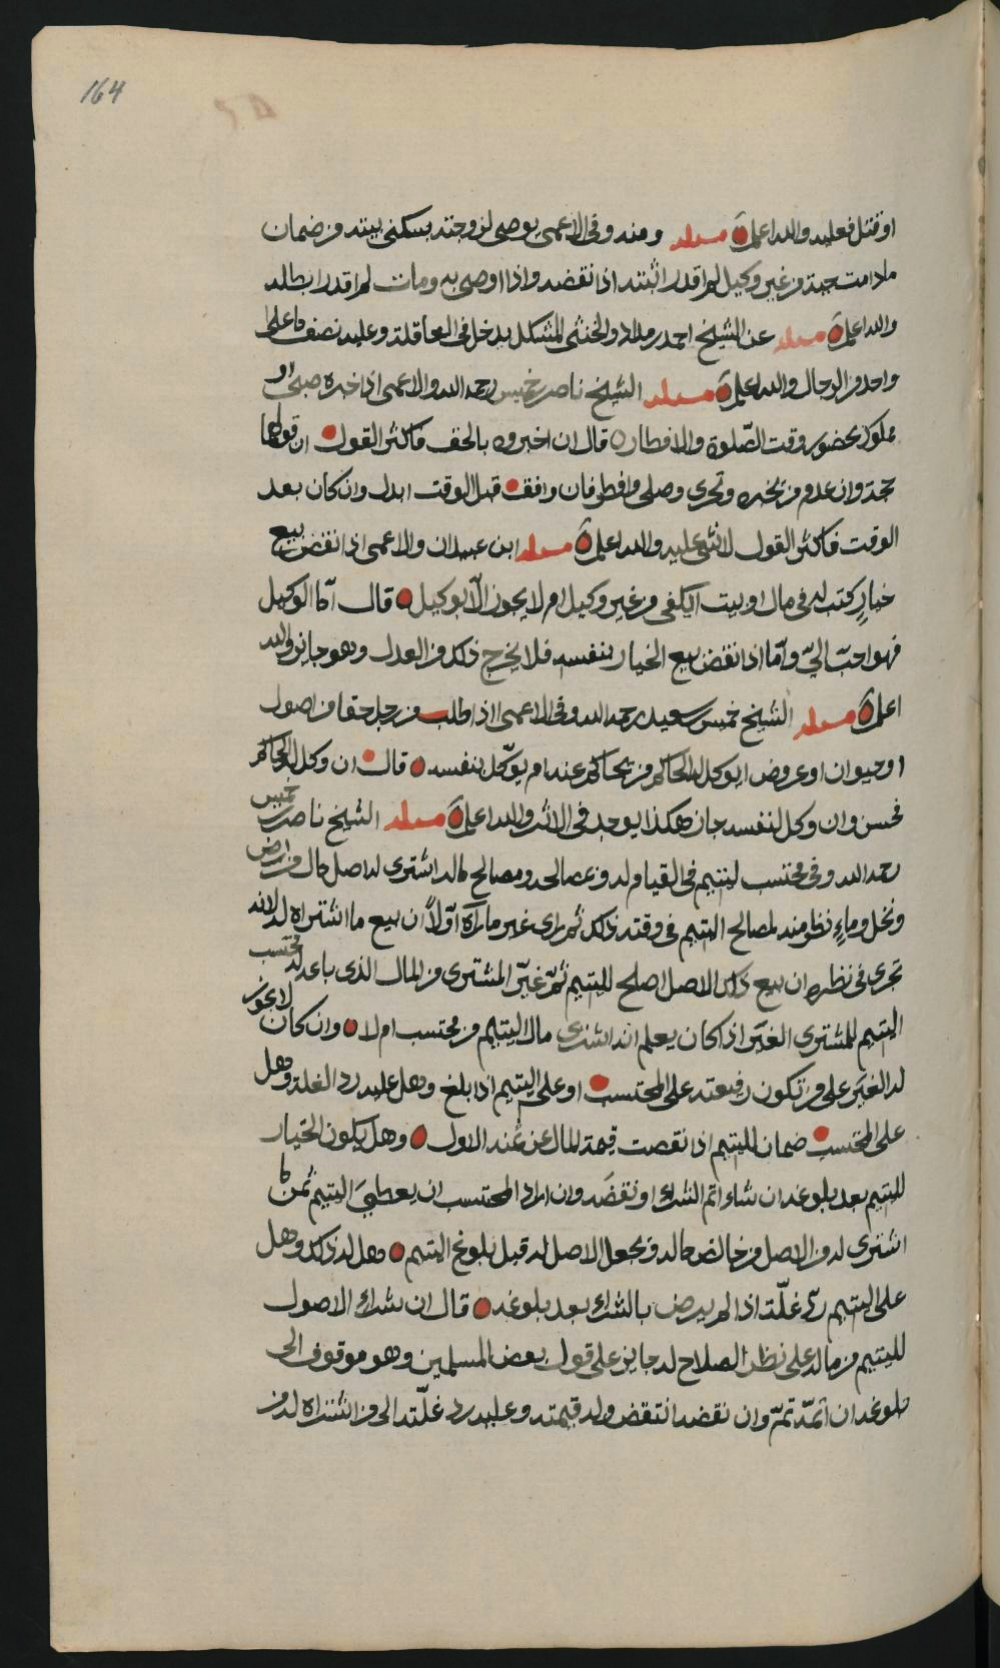 164
او قتل فعليه والله اعلم مسئلة ومنه وفي الاعمى يوصي لزوجته بسكنى بيته من ضمان
مادامت حية من غير وكيل لم اقدر اثبته اذا نقضه واذا اوصى به ومات لم اقدر ابطله
والله اعلم مسئلة عن الشيخ احمد بن مداد والخنثى المشكل يدخل في العاقلة وعليه نصف ما على
واحد من الرجال والله اعلم مسئلة الشيخ ناصر بن خميس رحمه الله والاعمى اذا اخبره صبي او
مملوك بحضور وقت الصّلوة والافطار قال ان اخبروه بالحق فاكثر القول ان قولهما
حجة وان عدم من يخبره وتحرى وصلى وافطر فان وافق قبل الوقت ابدل وان كان بعد
الوقت فاكثر القول لا شيء عليه والله اعلم مسئلة ابن عبيدان والاعمى اذا نقض بيع
خيارٍ كتب له في مال او بيت ايكفي من غير وكيل ام لا يجوز الّا بوكيل قال امّا الوكيل
فهو احبّ اليّ وامّا اذا نقض بيع الخيار بنفسه فلا يخرج ذلك من العدل وهو جائز والله
اعلم مسئلة الشيخ خميس بن سعيد رحمه الله وفي الاعمى اذا طلب من رجل حقا من اصول
او حيوان او عروض ايوكل له الحاكم من يحاكم عنه ام يوكّل بنفسه قال ان وكل له الحاكم
فحسن وان وكل لنفسه جاز هكذا يوجد في الاثر والله اعلم مسئلة الشيخ ناصر بن خميس
رحمه الله وفي محتسب ليتيم في القيام له من مصالحه ومصالح ماله اشترى له اصل مال من ارض
ونخل وماءٍ نظرا منه لمصالح اليتيم في وقته ذلك ثم راى غير ما رآه اوّلاً ان بيع ما اشتراه له لانه
تحرى في نظره ان بيع ذلك الاصل اصلح لليتيم ثمّ غيّر المشتري من المال الذي باعه له محتسب
اليتيم للمشتري الغِيَر اذا كان يعلم انه اشترى مال اليتيم من محتسب ام لا وان كان لا يجوز
له الغِيَر على من تكون رفيعته على المحتسب او على اليتيم اذا بلغ وهل عليه رد الغلة وهل
على المحتسب ضمان لليتيم اذا نقصت قيمة المال عن ثمنه الاول وهل يكون الخيار
لليتيم بعد بلوغه ان شاء اتم الشراء او نقضه وان اراد المحتسب ان يعطي اليتيم ثمن ما
اشترى له من الاصل من خالص ماله ويجعل الاصل له قبل بلوغ اليتيم هل له ذلك وهل
على اليتيم ردّ غلّته اذا لم يرض بالشراء بعد بلوغه قال ان شراء الاصول
لليتيم من ماله على نظر الصلاح له جايز على قول بعض المسلمين وهو موقوف الى
بلوغه ان اتمّه تمّ وان نقضه انتقض وله قيمته وعليه رد غلّته الى من اشتراه له من